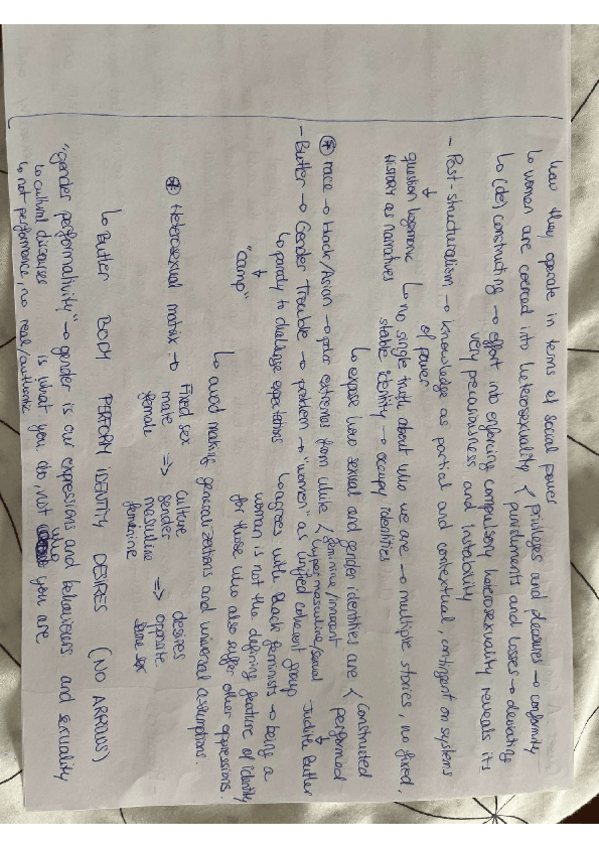 how they operate in terms of social power
↳ women are coerced into heterosexuality { privileges and pleasures → conformity
punishments and losses → deviating
↳ (de)constructing → effort into enforcing compulsory heterosexuality reveals its
very precariousness and instability
- Post-structuralism → knowledge as partial and contextual, contingent on systems
of power
question hegemonic ↳ no single truth about who we are → multiple stories, no fixed,
HISTORY as narratives stable identity → occupy identities
↳ expose how sexual and gender identities are { constructed
performed
* race → black/Asian → polar extremes from white { feminine/inexpert
hypermasculine/sexual Judith Butler
- Butler → Gender Trouble → problem → "women" as unified coherent group
↳ parody to challenge expectations ↳ agrees with black feminists → being a
"camp" woman is not the defining feature of identity
for those who also suffer other oppressions.
↳ avoid making generalizations and universal assumptions.
* Heterosexual matrix → Fixed sex => culture => desires
male gender opposite
female masculine same sex
feminine
↳ Butler BODY PERFORM IDENTITY DESIRES (NO ARROWS)
"gender performativity" → gender is our expressions and behaviours and sexuality
↳ cultural discourses is what you do, not who you are
↳ not performance, no real/authentic